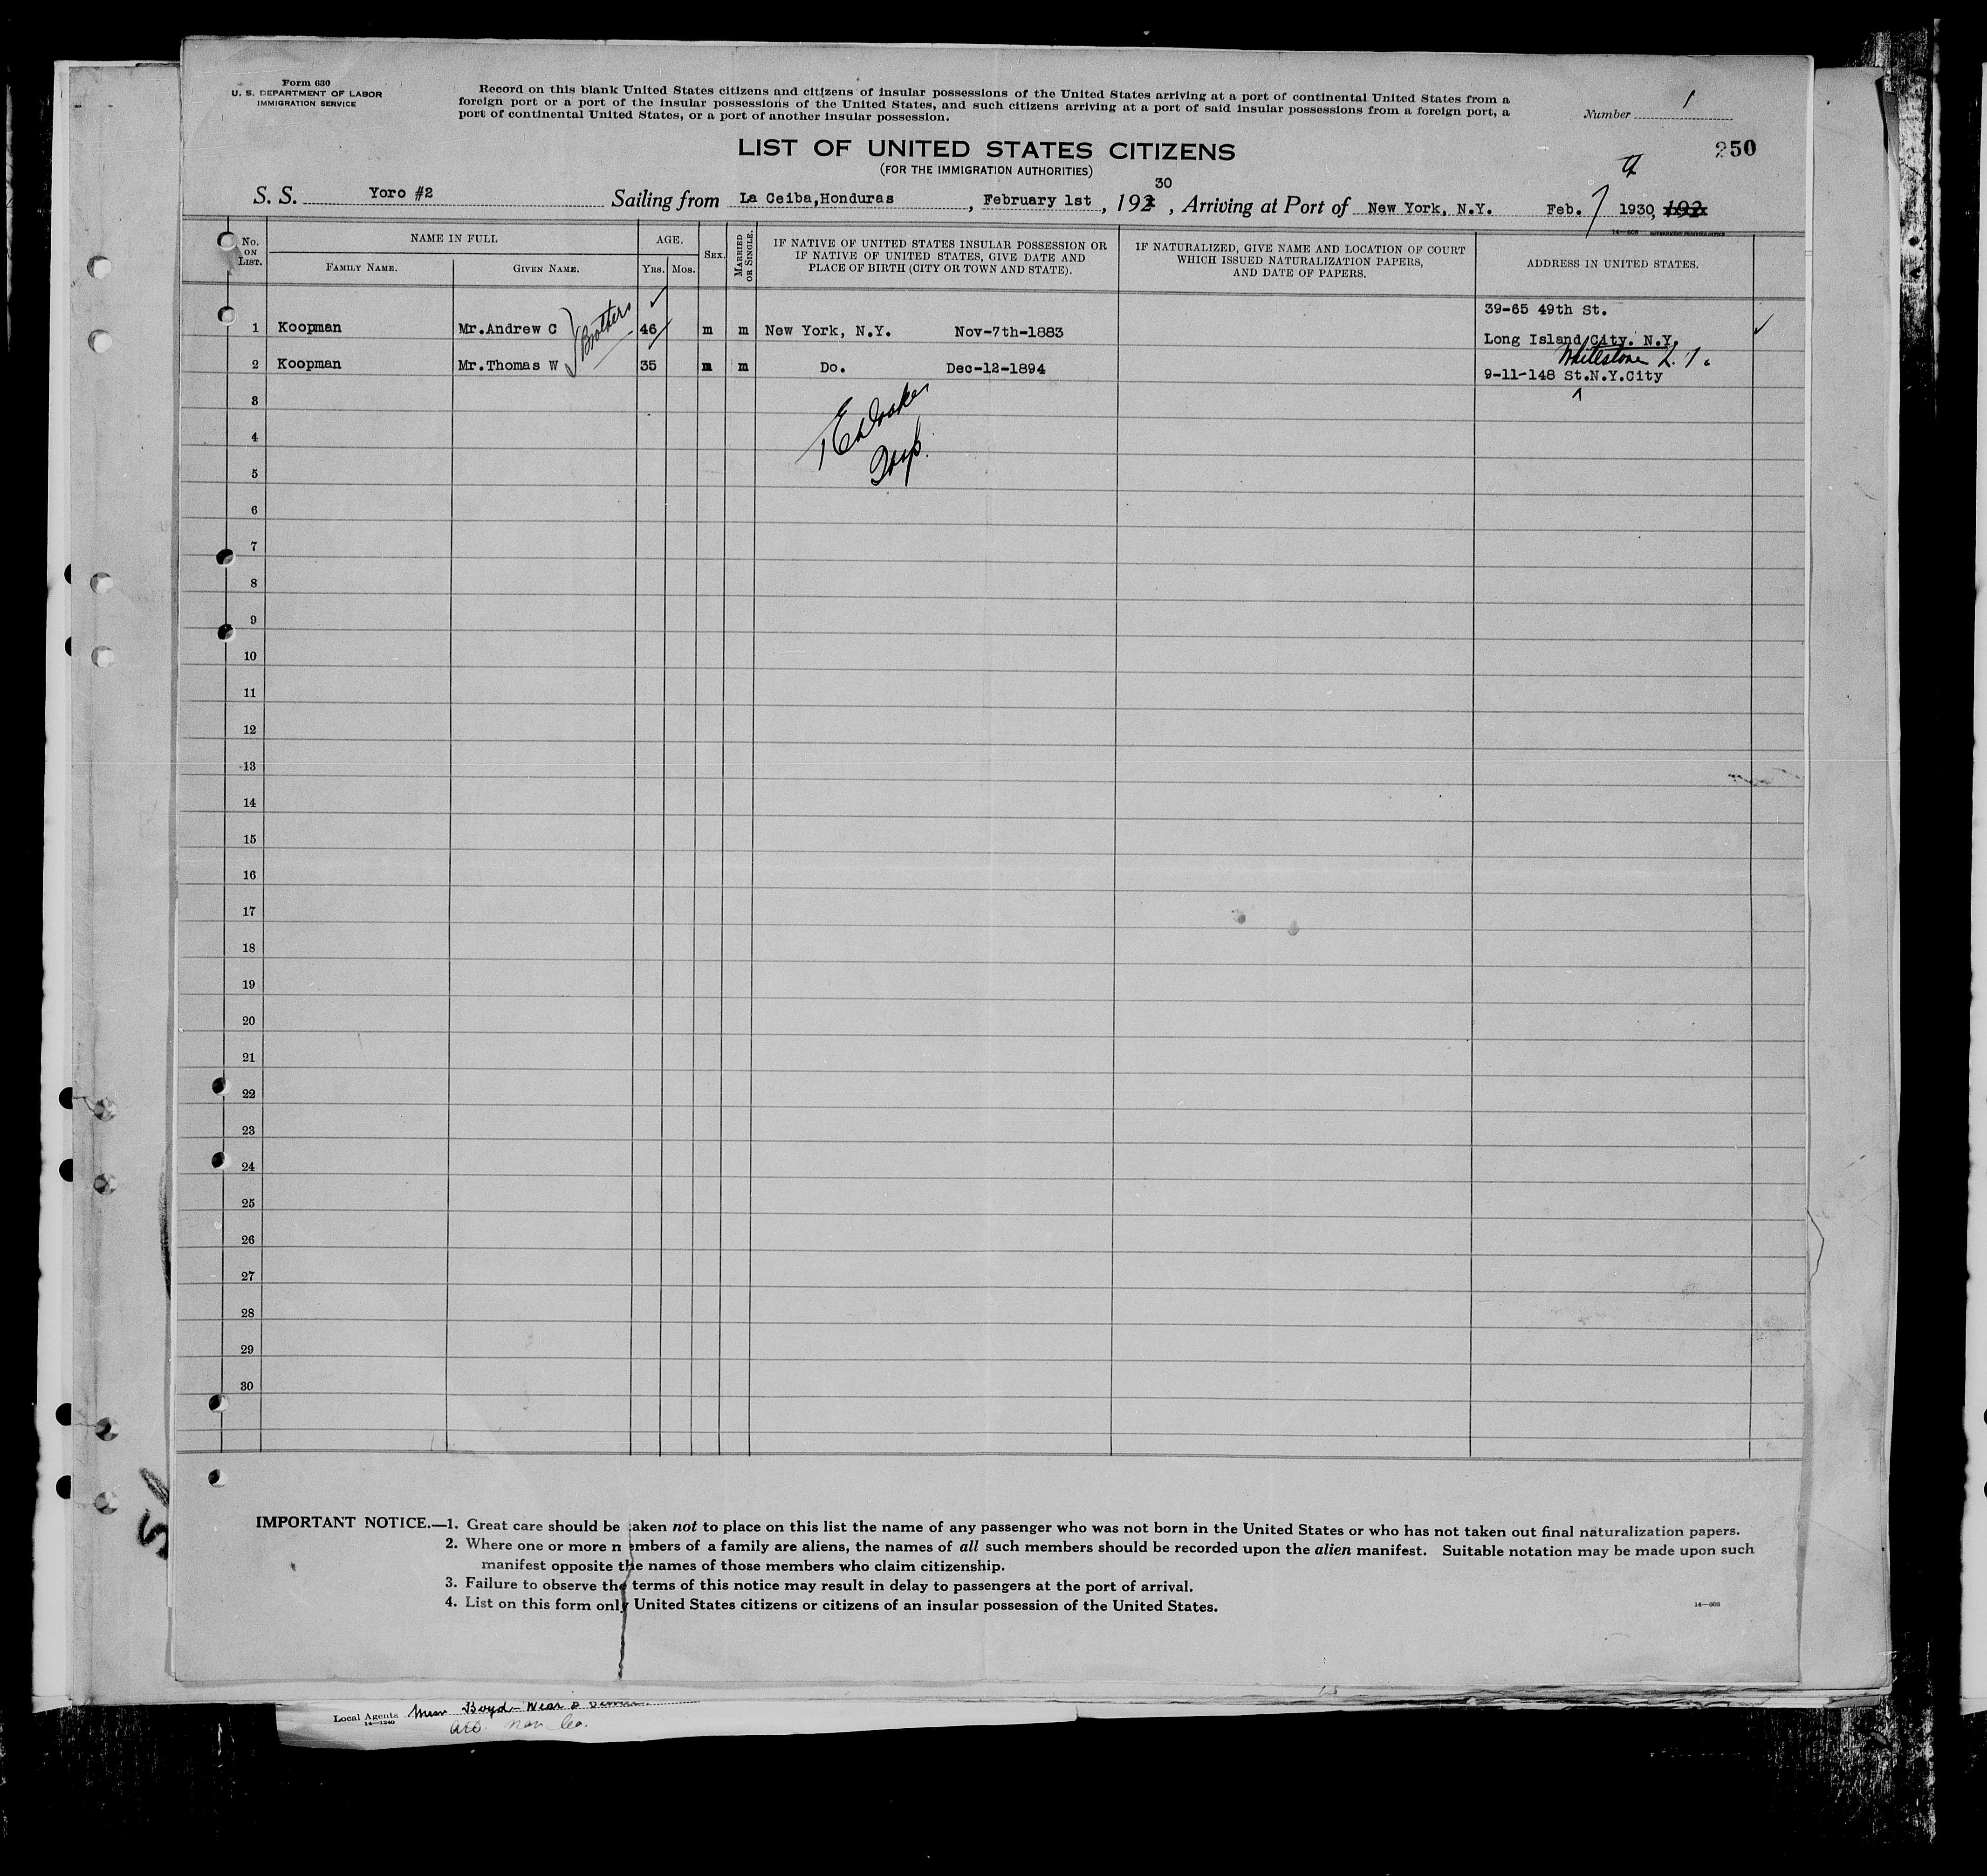 Form 630
U. S. DEPARTMENT OF LABOR
IMMIGRATION SERVICE
Record on this blank United States citizens and citizens of insular possessions of the United States arriving at a port of continental United States from a
foreign port or a port of the insular possessions of the United States, and such citizens arriving at a port of said insular possessions from a foreign port, a
port of continental United States, or a port of another insular possession.
Number 1
250
LIST OF UNITED STATES CITIZENS
(FOR THE IMMIGRATION AUTHORITIES)
S. S. Yoro #2 Sailing from La Ceiba,Honduras , February 1st , 192 30 , Arriving at Port of New York, N.Y. Feb. 7 1930, 192
No. ON LIST.
NAME IN FULL
FAMILY NAME.
GIVEN NAME.
AGE.
YRS. MOS.
SEX.
MARRIED OR SINGLE.
IF NATIVE OF UNITED STATES INSULAR POSSESSION OR
IF NATIVE OF UNITED STATES, GIVE DATE AND
PLACE OF BIRTH (CITY OR TOWN AND STATE).
IF NATURALIZED, GIVE NAME AND LOCATION OF COURT
WHICH ISSUED NATURALIZATION PAPERS,
AND DATE OF PAPERS.
ADDRESS IN UNITED STATES.
39-65 49th St.
1 Koopman Mr.Andrew C Brothers 46 m m New York, N.Y. Nov-7th-1883
Long Island City. N.Y.
Whitestone L.I.
2 Koopman Mr.Thomas W 35 m m Do. Dec-12-1894
9-11-148 St.N.Y.City
3
4
5
Insp.
6
7
8
9
10
11
12
13
14
15
16
17
18
19
20
21
22
23
24
25
26
27
28
29
30
IMPORTANT NOTICE.—1. Great care should be taken not to place on this list the name of any passenger who was not born in the United States or who has not taken out final naturalization papers.
2. Where one or more members of a family are aliens, the names of all such members should be recorded upon the alien manifest. Suitable notation may be made upon such
manifest opposite the names of those members who claim citizenship.
3. Failure to observe the terms of this notice may result in delay to passengers at the port of arrival.
4. List on this form only United States citizens or citizens of an insular possession of the United States.
14—608
Local Agents Boyd-Wear
14—1240